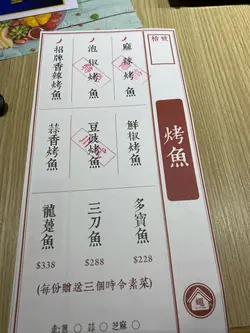 烤魚
麻辣烤魚
泡椒烤魚
招牌香辣烤魚
鮮椒烤魚
豆豉烤魚
蒜香烤魚
多寶魚
$228
三刀魚
$288
龍躉魚
$338
(每份贈送三個時令素菜)
蒜 ○ 芝麻 ○